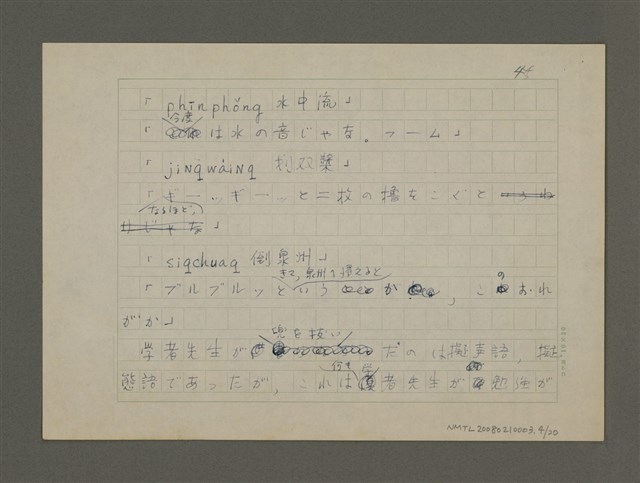 44
「phīnphǒng 水中流」
今度
「は水の音じゃな。フーム」
「jīnqwáinq 划双槳」
「ギー…ッギー…ッと二枚の櫓をこぐと
なるほど、
けじゃな」
「siqchuaq 倒泉州」
さて、泉州へ帰えると
「ブルブルッというか、このおれ
がか」
兜を抜い
学者先生がだのは擬声語，擬
何も
態語であったが，これは学者先生が勉強が
NMTL20080210003.4/20